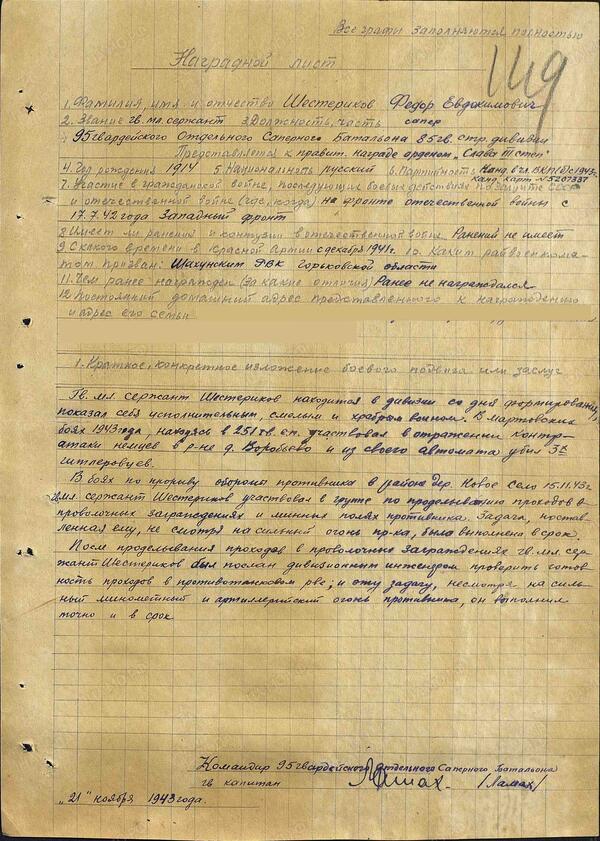 Все графы заполняются полностью
149
Наградной лист
1. Фамилия, имя и отчество Шестериков Федор Евдокимович
2. Звание гв. мл. сержант 3 Должность, часть сапер
95 гвардейского Отдельного Саперного Батальона 85 гв. стр. дивизии
Представляется к правит. награде орденом „Слава III степ"
4. Год рождения 1914 5. Национальность русский 6. Партийность Канд. в чл. ВКП(б) с 1943г.
канд. карт. №5207337
7. Участие в гражданской войне, последующих боевых действиях по защите СССР
и отечественной войне (где, когда) на фронте отечественной войны с
17.7.42 года Западный фронт
8. Имеет ли ранения и контузии в отечественной войне Ранений не имеет
9. С какого времени в Красной Армии с декабря 1941г. 10. Каким райвоенкома-
том призван: Шахунским РВК Горьковской области
11. Чем ранее награжден (За какие отличия) Ранее не награждался
12 Постоянный домашний адрес представляемого к награждению
и адрес его семьи
1. Краткое, конкретное изложение боевого подвига или заслуг
Гв. мл сержант Шестериков находится в дивизии со дня формирования,
показал себя исполнительным, смелым и храбрым воином. В Мартовских
боях 1943 года, находясь в 251 гв. с.п. участвовал в отражении контр-
атаки немцев в р-не д. Воробьево и из своего автомата убил 3х
гитлеровцев.
В боях по прорыву обороны противника в районе дер. Новое Село 15.11.43г
мл сержант Шестериков участвовал в группе по проделыванию проходов в
проволочных заграждениях и минных полях противника. Задача, постав-
ленная ему, не смотря на сильный огонь пр-ка, была выполнена в срок.
После проделывания проходов в проволочных заграждениях гв. мл сер-
жант Шестериков был послан дивизионным инженером проверить готов-
ность проходов в противотанковом рве; и эту задачу, несмотря на силь-
ный минометный и артиллерийский огонь противника, он выполнил
точно и в срок
Командир 95 гвардейского отдельного Саперного Батальона
гв капитан /Ламах/
„21" ноября 1943 года.